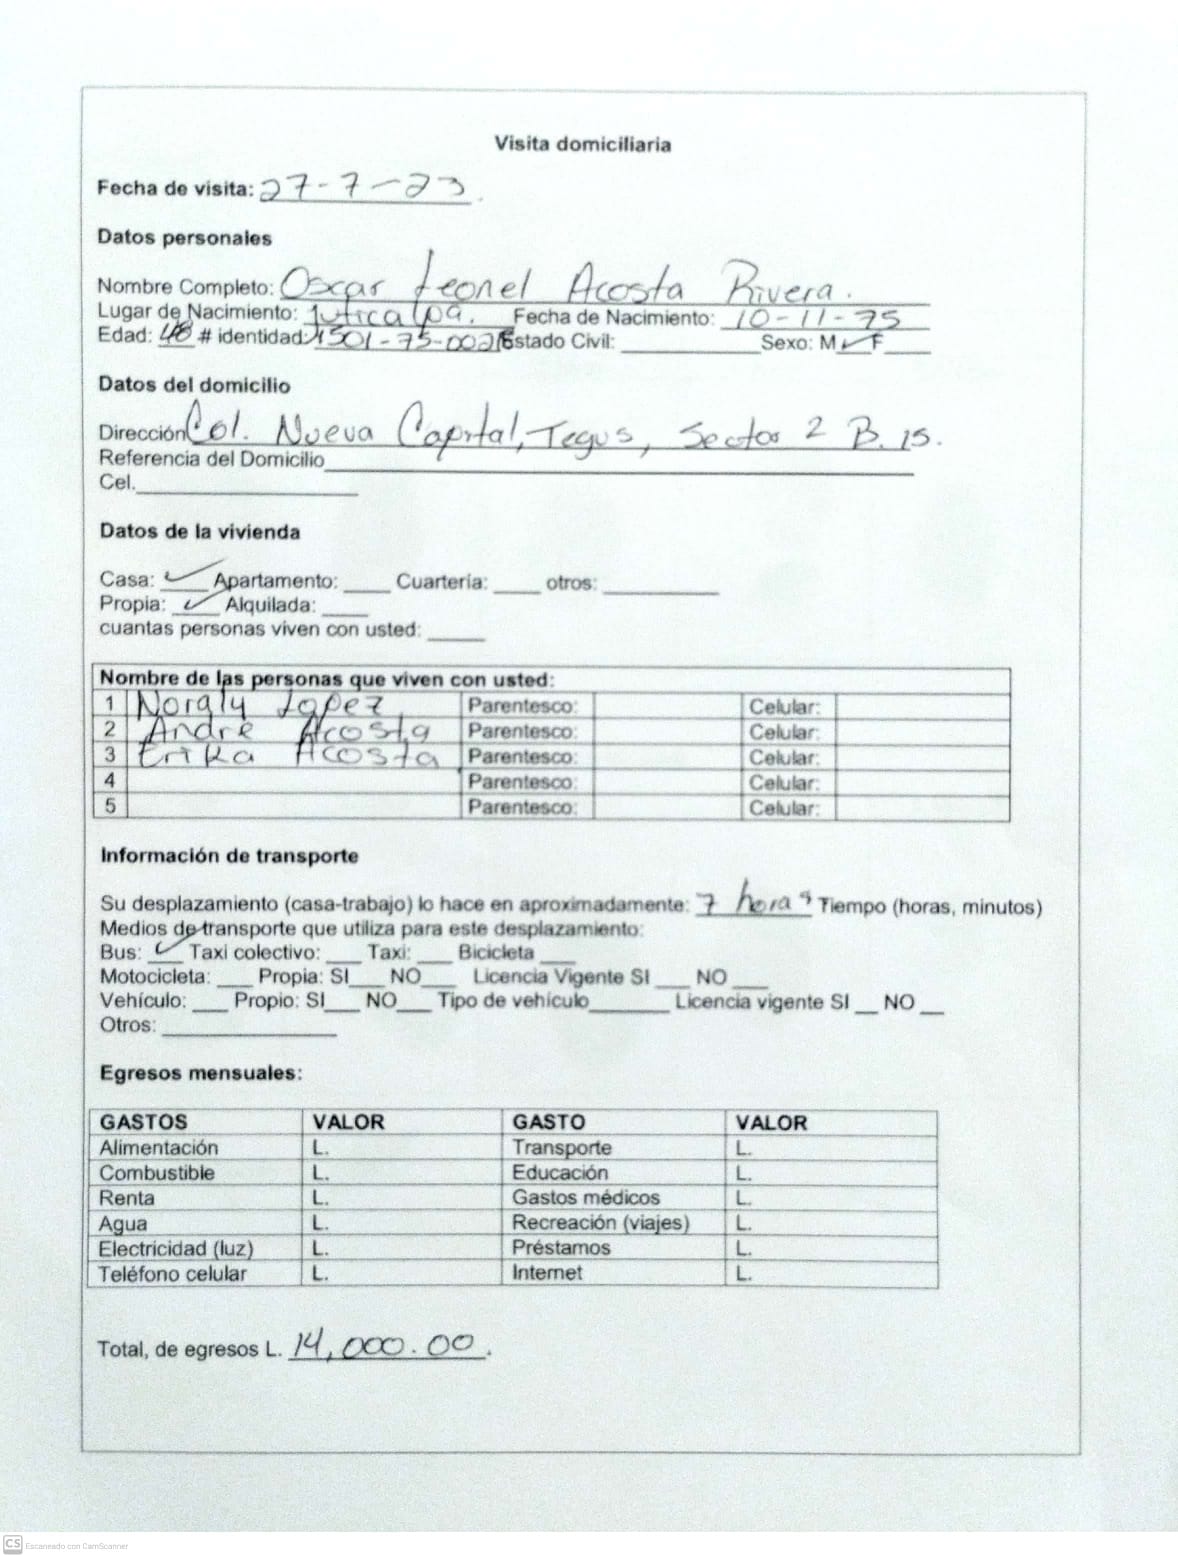 Visita domiciliaria
Fecha de visita: 27-7-23.
Datos personales
Nombre Completo: Oscar Leonel Acosta Rivera.
Lugar de Nacimiento: Juticalpa. Fecha de Nacimiento: 10-11-75
Edad: 48 # identidad: 1501-75-0021 Estado Civil: ____ Sexo: M ✓ F ____
Datos del domicilio
Dirección Col. Nueva Capital, Tegus, Sector 2 B. 15.
Referencia del Domicilio ____
Cel. ____
Datos de la vivienda
Casa: ✓ Apartamento: ____ Cuartería: ____ otros: ____
Propia: ✓ Alquilada: ____
cuantas personas viven con usted: ____
Nombre de las personas que viven con usted:
1 Noraly Lopez Parentesco: Celular:
2 Andre Acosta Parentesco: Celular:
3 Erika Acosta Parentesco: Celular:
4 Parentesco: Celular:
5 Parentesco: Celular:
Información de transporte
Su desplazamiento (casa-trabajo) lo hace en aproximadamente: 7 horas Tiempo (horas, minutos)
Medios de transporte que utiliza para este desplazamiento:
Bus: ✓ Taxi colectivo: ___ Taxi: ___ Bicicleta ___
Motocicleta: ___ Propia: SI ___ NO ___ Licencia Vigente SI ___ NO ___
Vehículo: ___ Propio: SI ___ NO ___ Tipo de vehículo ____ Licencia vigente SI __ NO __
Otros: ____
Egresos mensuales:
GASTOS VALOR GASTO VALOR
Alimentación L. Transporte L.
Combustible L. Educación L.
Renta L. Gastos médicos L.
Agua L. Recreación (viajes) L.
Electricidad (luz) L. Préstamos L.
Teléfono celular L. Internet L.
Total, de egresos L. 14,000.00.
CS Escaneado con CamScanner